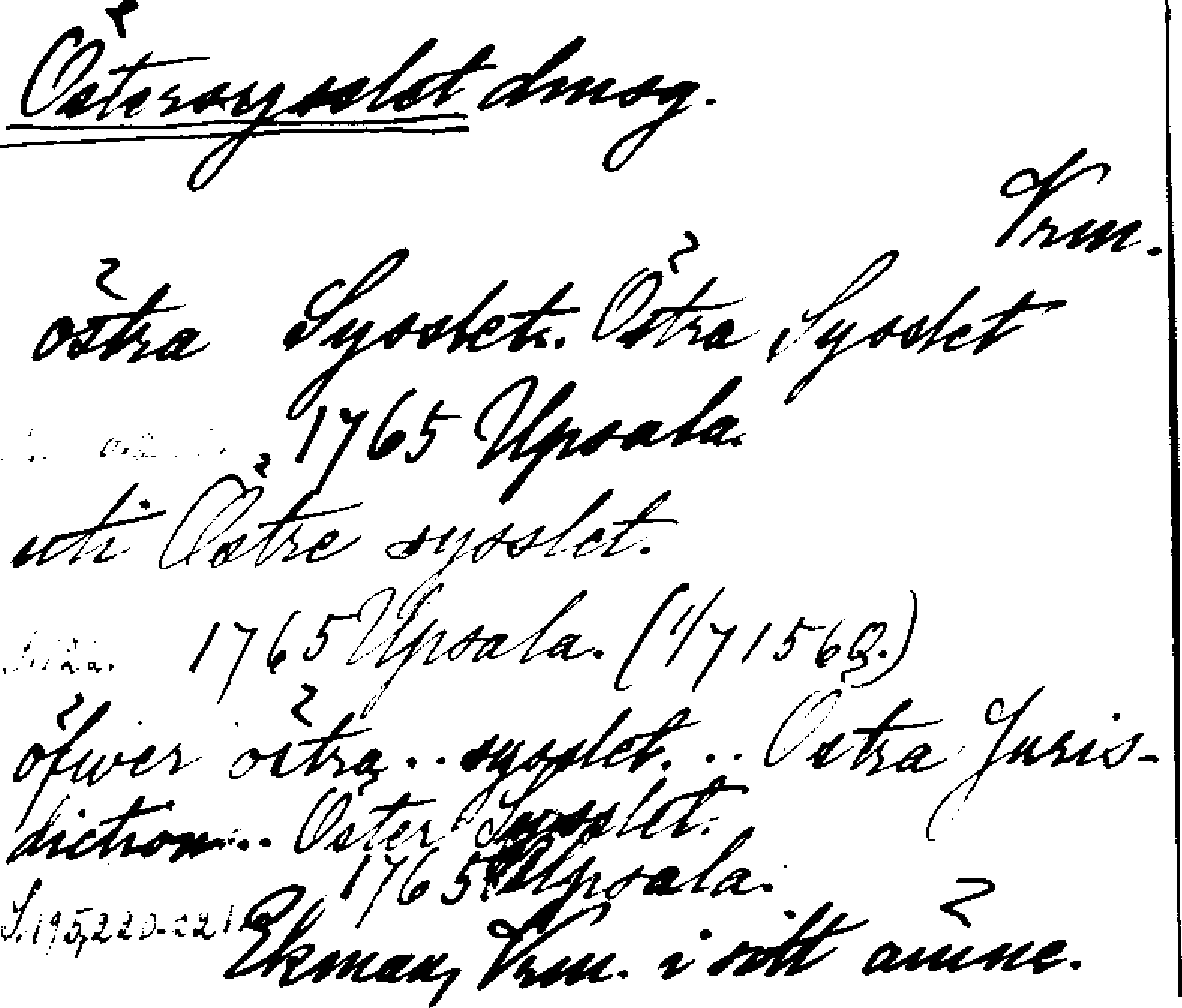 Östersysslet dmsg.
Vrm.
östra Sysslet. Östra Sysslet
1765 Upsala.
uti Östre sysslet.
1765 Upsala. (1/7 1568.)
öfwer östra .. sysslet. .. Östra Juris-
diction ... Öster Sysslet.
1765 Upsala.
S. 195, 220-221
Ekman, Vrm. i sitt ämne.